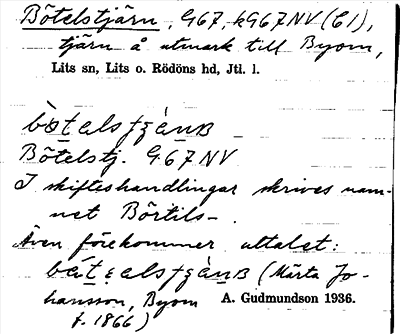 Bötelstjärn, G67, kG67NV (E1),
tjärn å utmark till Byom,
Lits sn, Lits o. Rödöns hd, Jtl. l.
Bötelstj. G67NV
I skifteshandlingar skrives nam-
net Börtils-.
Även förekommer uttalet:
(Märta Jo-
hansson, Byom A. Gudmundson 1936.
f. 1866)